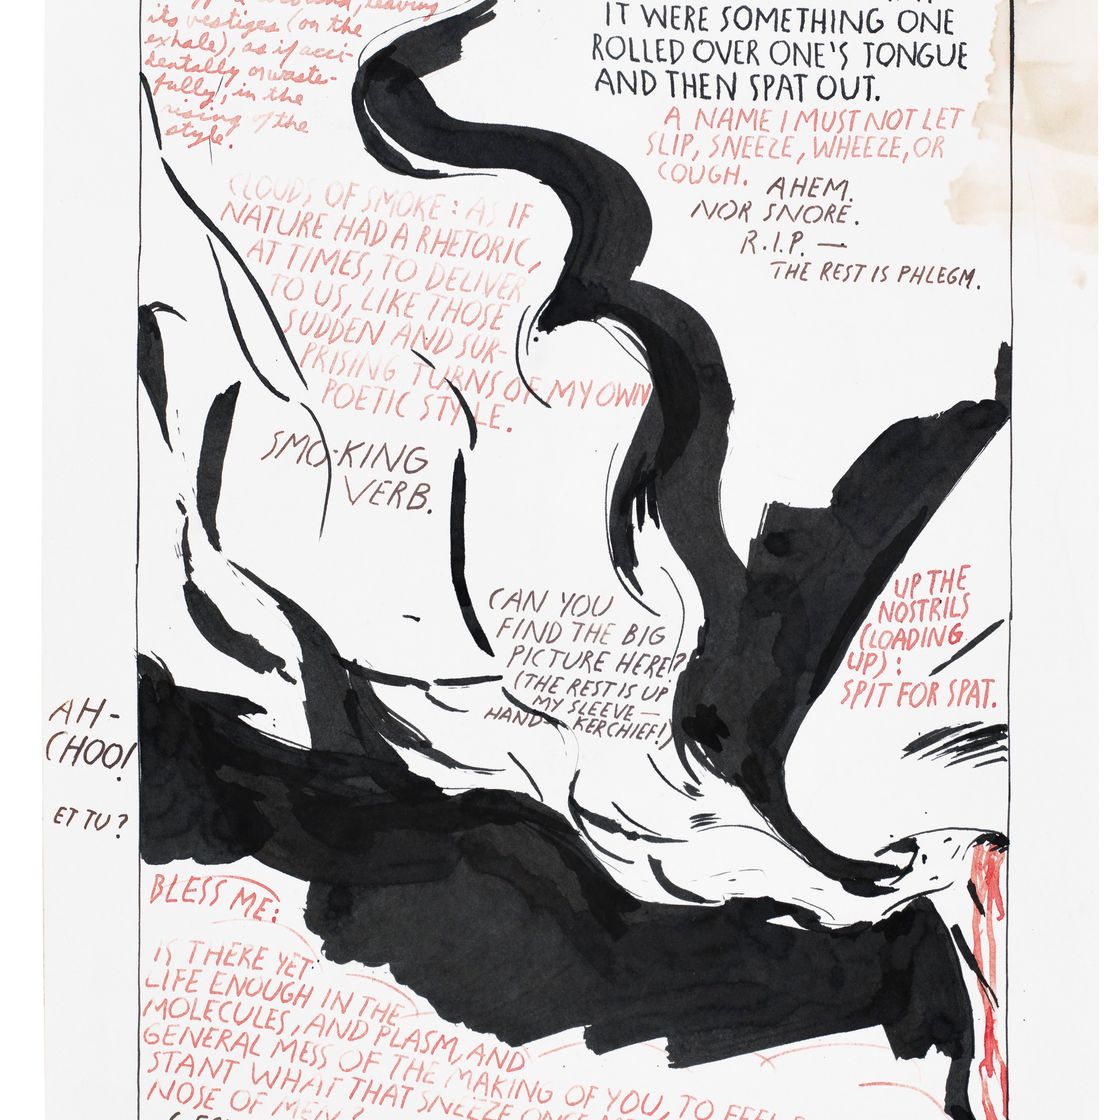 leaving
its vestiges (on the
exhale), as if acci-
dentally or waste-
fully, in the
rising of the
style.
IT WERE SOMETHING ONE
ROLLED OVER ONE'S TONGUE
AND THEN SPAT OUT.
A NAME I MUST NOT LET
SLIP, SNEEZE, WHEEZE, OR
COUGH.
AHEM.
NOR SNORE.
R.I.P. —
THE REST IS PHLEGM.
CLOUDS OF SMOKE: AS IF
NATURE HAD A RHETORIC,
AT TIMES, TO DELIVER
TO US, LIKE THOSE
SUDDEN AND SUR-
PRISING TURNS OF MY OWN
POETIC STYLE.
SMO-KING
VERB.
CAN YOU
FIND THE BIG
PICTURE HERE?
(THE REST IS UP
MY SLEEVE —
HAND-KERCHIEF!)
UP THE
NOSTRILS
(LOADING
UP):
SPIT FOR SPAT.
AH-
CHOO!
ET TU?
BLESS ME:
IS THERE YET
LIFE ENOUGH IN THE
MOLECULES, AND PLASM, AND
GENERAL MESS OF THE MAKING OF YOU, TO FEEL
STANT WHAT THAT SNEEZE ONCE
NOSE OF MEN?